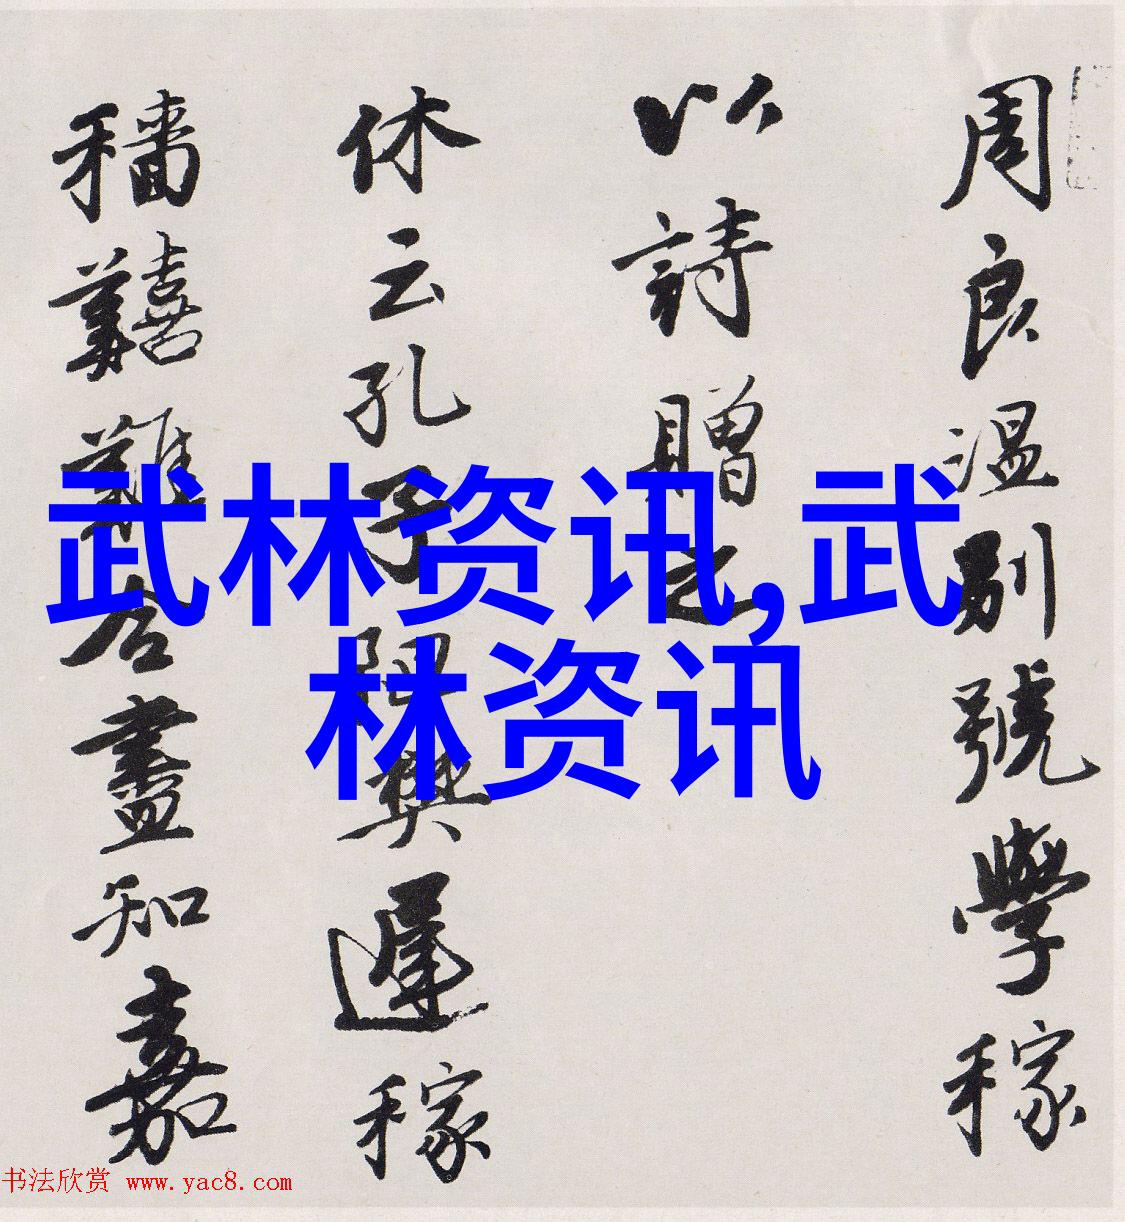 周良温别號學稼
以詩贈之
休云孔子阻樊遲稼
穡囏難君盡知嘉
武林资讯,武
林资讯
书法欣赏 www.yac8.com